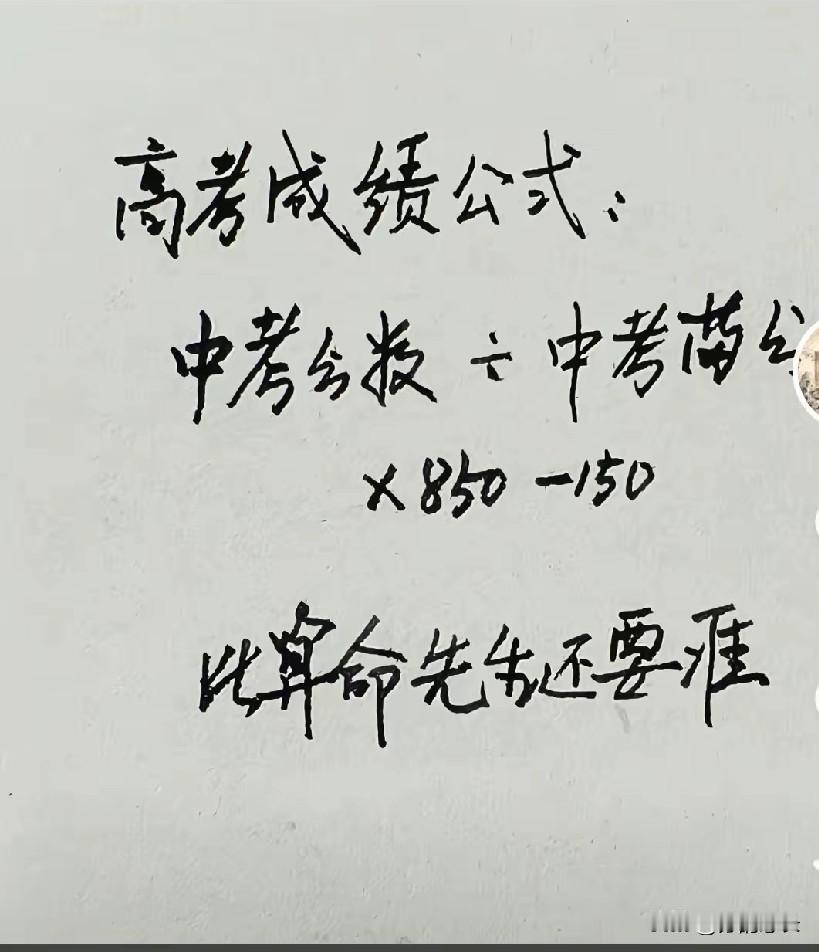 高考成绩公式:
中考分数÷中考满分
×850-150
比算命先生还要准